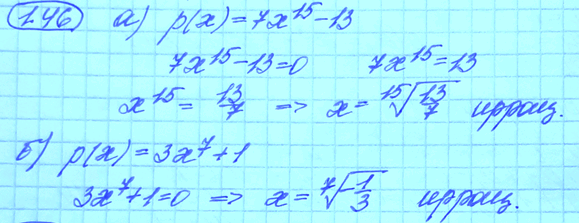 1.46 а) p(x)=7x¹⁵-13
7x¹⁵-13=0 7x¹⁵=13
x¹⁵ = 13/7 => x= ¹⁵√(13/7) иррац.
б) p(x)=3x⁷+1
3x⁷+1=0 => x= ⁷√(-1/3) иррац.